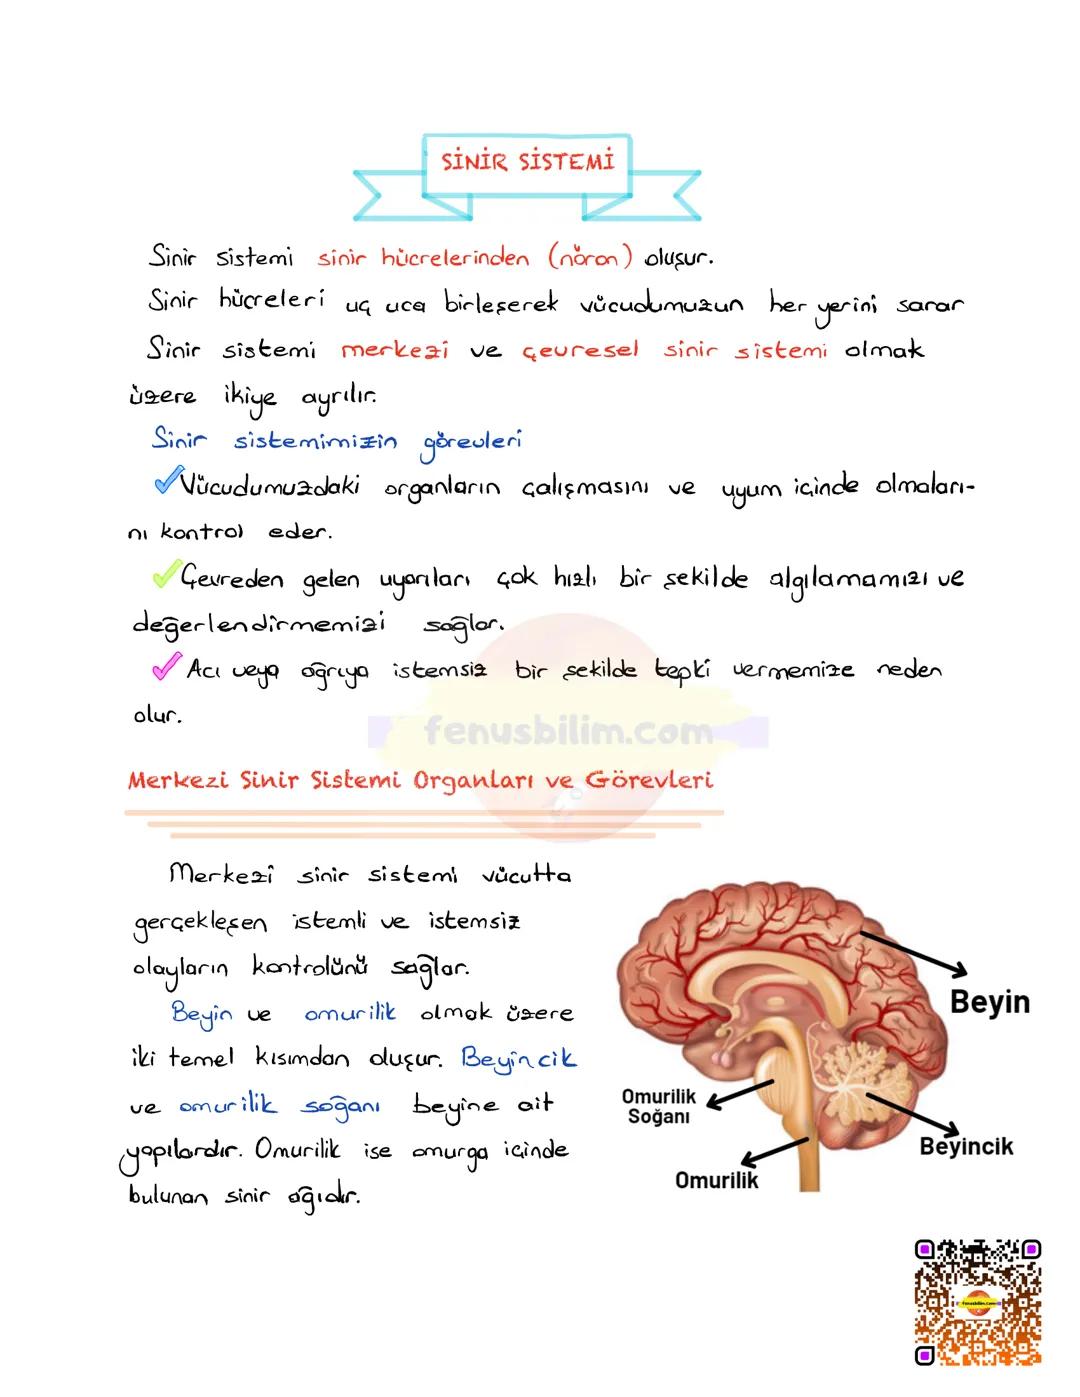 SİNİR SİSTEMİ
Sinir sistemi sinir hücrelerinden (nöron) oluşur.
Sinir hücreleri uç uca birleşerek vücudumuzun her yerini sarar
Sinir sistemi merkezi ve çevresel sinir sistemi olmak
üzere ikiye ayrılır.
Sinir sistemimizin görevleri
Vücudumuzdaki organların çalışmasını ve uyum içinde olmaları-
nı kontrol eder.
Çevreden gelen uyarıları çok hızlı bir şekilde algılamamızı ve
değerlendirmemizi sağlar.
Acı veya ağrıya istemsiz bir şekilde tepki vermemize neden
olur.
fenusbilim.com
Merkezi Sinir Sistemi Organları ve Görevleri
Merkezi sinir sistemi vücutta
gerçekleşen istemli ve istemsiz
olayların kontrolünü sağlar.
Beyin ve omurilik olmak üzere
iki temel kısımdan oluşur. Beyincik
ve omurilik soğanı beyine ait
yapılardır. Omurilik ise omurga içinde
bulunan sinir ağıdır.
Beyin
Omurilik
Soğanı
Beyincik
Omurilik
fenusbilim.com